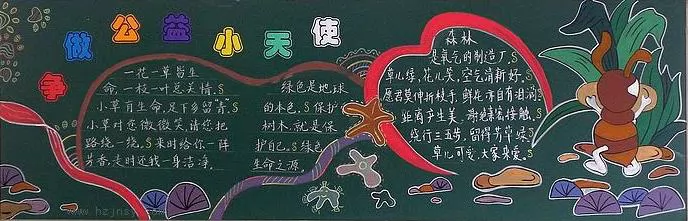 争做公益小天使
一花一草皆生
命,一枝一叶总关情。
小草有生命,足下多留青。
小草对您微微笑,请您把
路绕一绕。来时给你一阵
芳香,走时还我一身洁净。
绿色是地球
的本色。保护
树木,就是保
护自己。绿色
生命之源。
森林
是氧气的制造厂。
草儿绿,花儿笑,空气清新好。
愿君莫伸折枝手,鲜花亦自有泪滴。
距离产生美,谢绝亲密接触。
绕行三五步,留得芳草绿。
草儿可爱,大家来爱。
www.hzjns